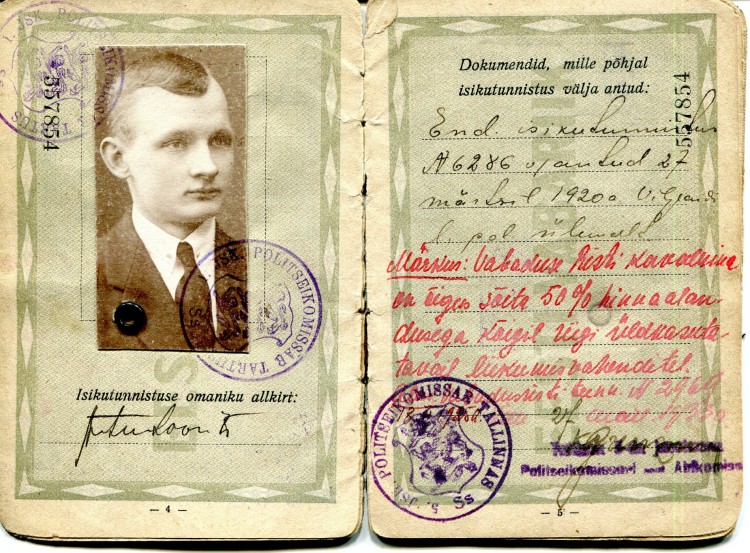 557854
I. JSK. POLITSEIKOMISSAR TARTUS
Ss
JSK. POLITSEIKOMISSAR TARTUS
Ss
Isikutunnistuse omaniku allkiri:
— 4 —
Dokumendid, mille põhjal
isikutunnistus välja antud:
557854
End. isikutunnistus
N 6286 v. antud 27
märtsil 1920a Viljandi
pol. ülemalt
Märkus: Vabaduse Risti kavalerina
on õigus sõita 50% hinnaalan-
dusega kõigil riigi üldkasuta-
tavail liikumisvahendeil.
N
27
5. JSK POLITSEIKOMISSAR TALLINNAS
Ss
Politseikomissari Abikomiss
— 5 —